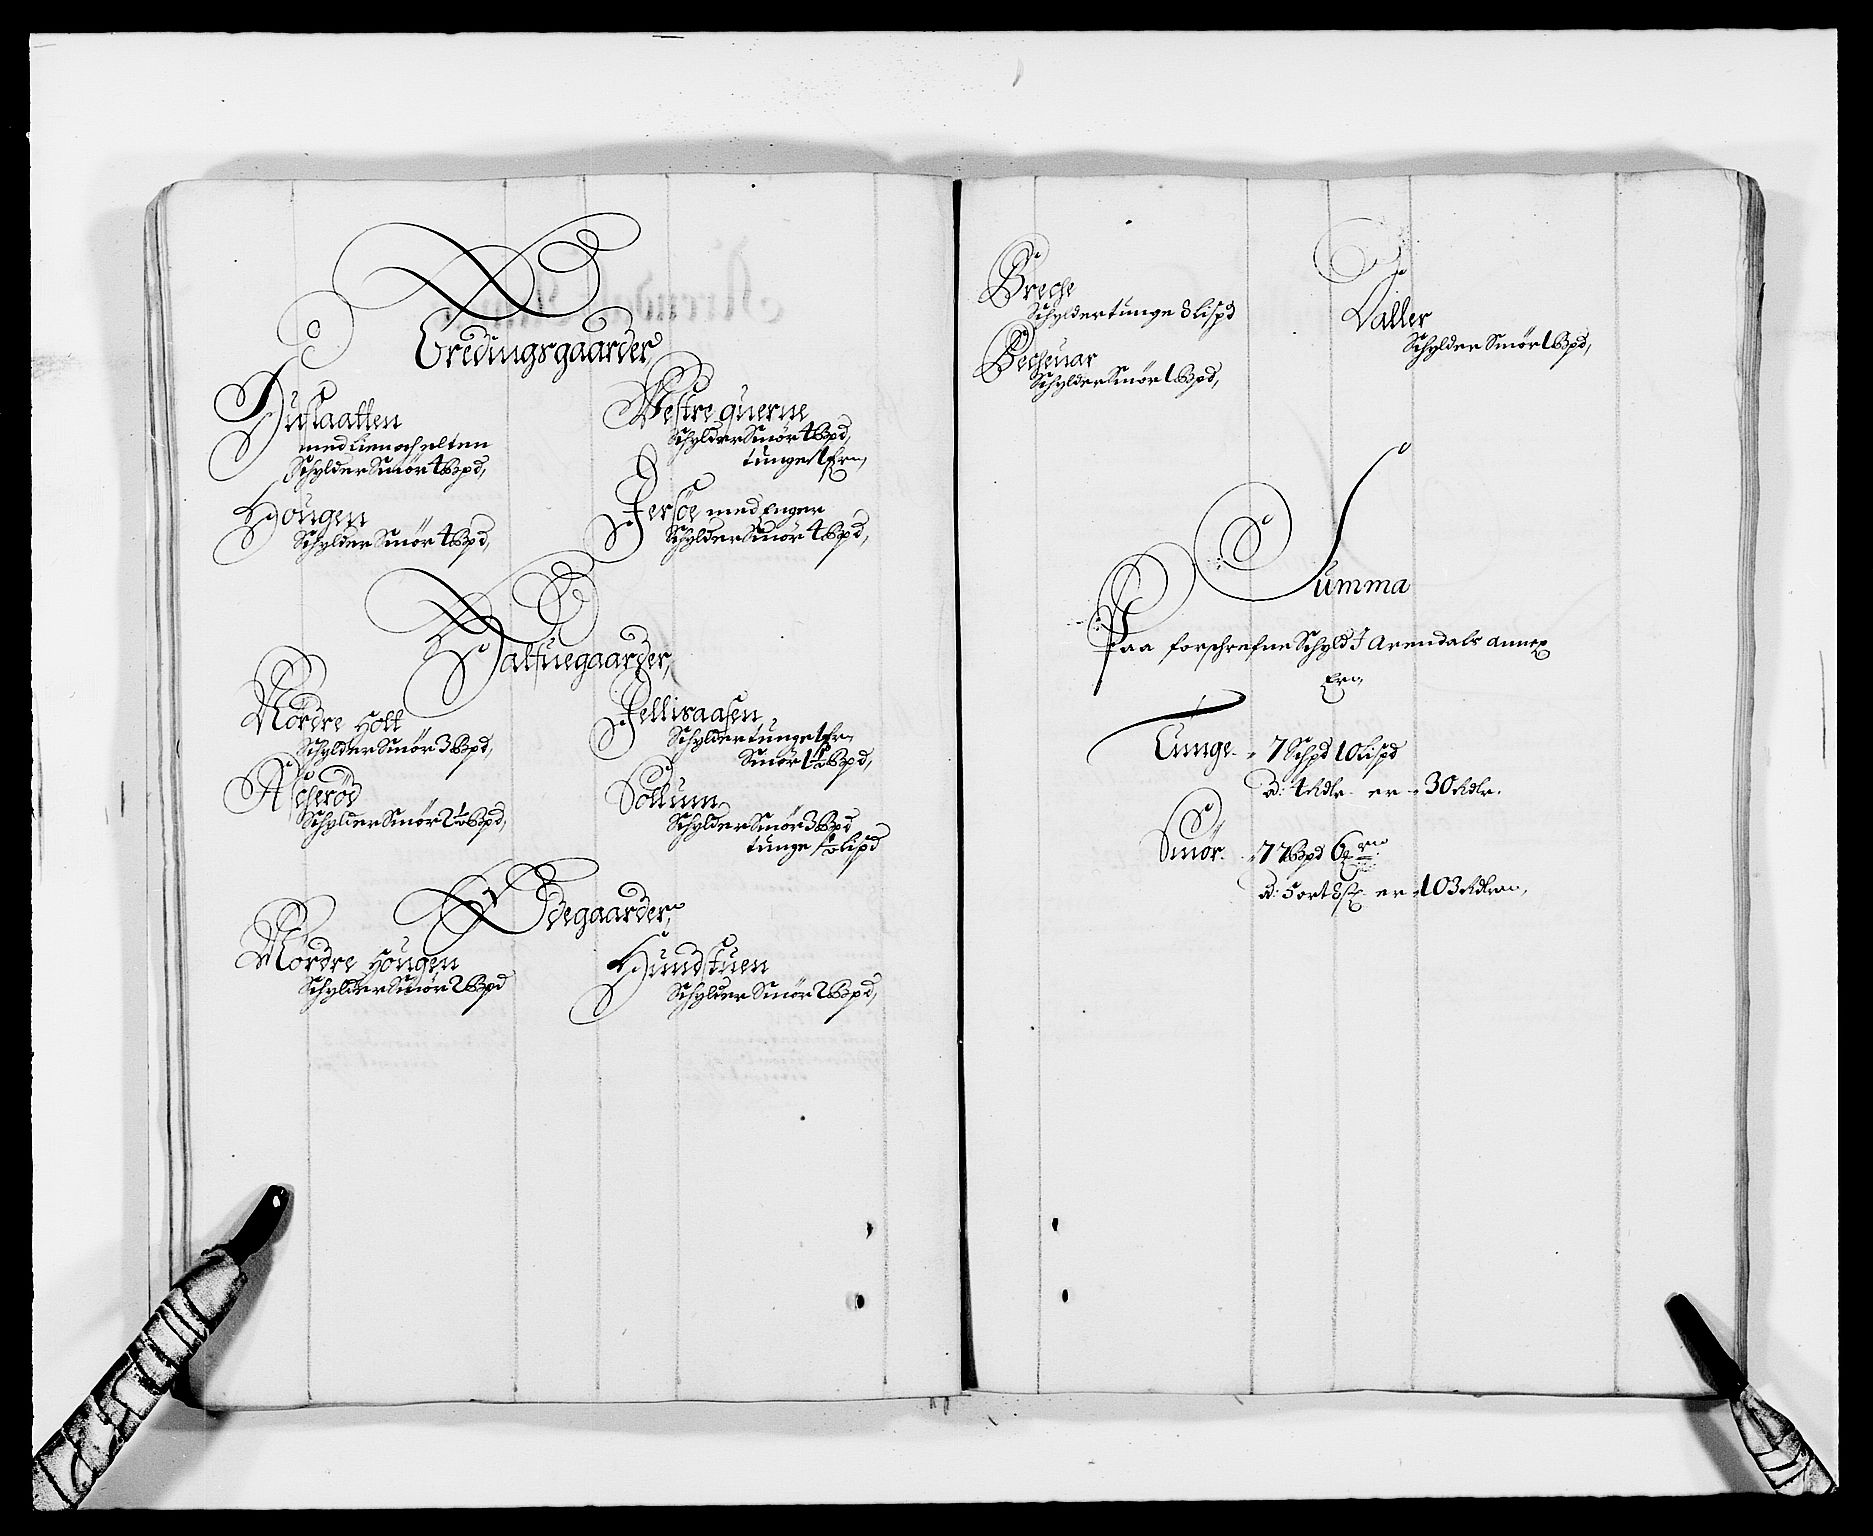 Tredingsgaarder
Huslaatten
med Lien och elten
Schylder Smör 4 Bpd,
Hougen
Schylder Smör 4 Bpd,
Westre querne
Schylder Smör 4 Bpd,
tunge 1 fr
Jersöe med enger
Schylder Smör 4 Bpd,
Halfuegaarder,
Nördre Holt
Schylder Smör 3 Bpd,
Ascheröd
Schylder Smör 2½ Bpd,
Fellisaasen
Schylder tunge 1 fr
Smör 1½ Bpd,
Sollum
Schylder Smör 3 Bpd
tunge ½ lispd
Ödegaarder
Nördre Hougen
Schylder Smör 2 Bpd
Hundstuen
Schylder Smör 2 Bpd,
Breche
Schylder tunge 8 lispd
Bechenar
Schylder Smör 1 Bpd,
Valler
Schylder Smör 1 Bpd,
Summa
Paa forschrefne Schyld I Arendals annex
Er
Tunge 7 Schpd 10 Lispd
a: 4 Rdlr er 30 Rdlr.
Smör 77 Bpd 6
a: 5 ort 8 er 103 Rdlr